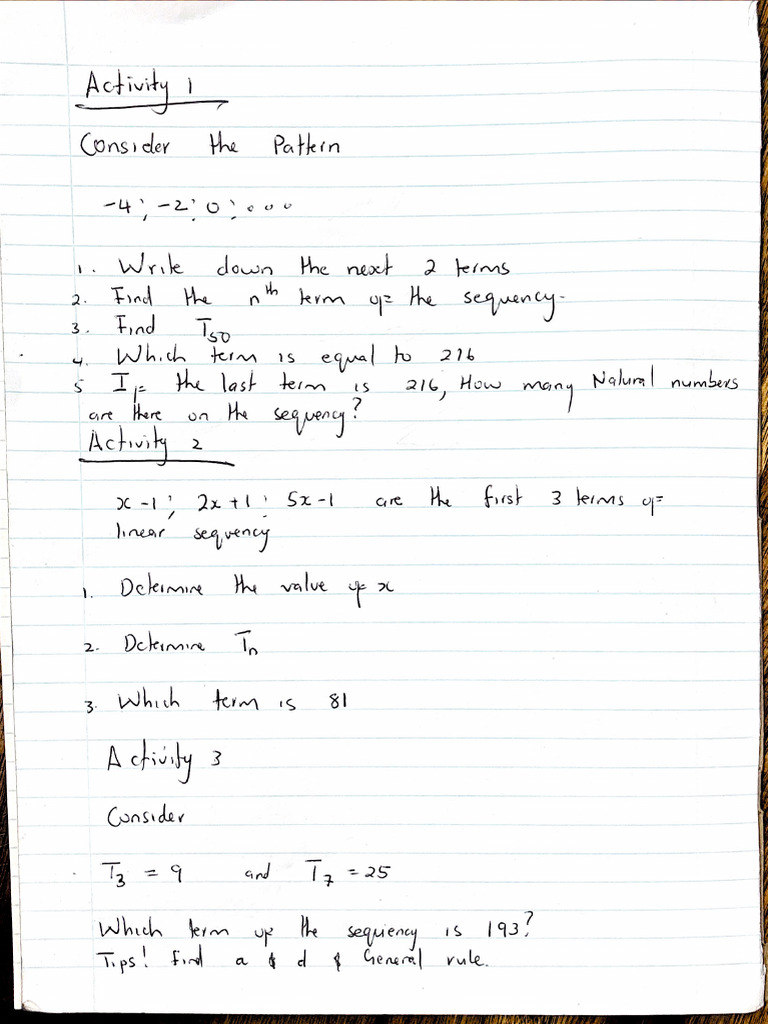 Activity 1
Consider the Pattern
-4; -2; 0; ...
1. Write down the next 2 terms
2. Find the nth term of the sequency.
3. Find T50
4. Which term is equal to 216
5 If the last term is 216, How many Natural numbers
are there on the sequency?
Activity 2
x - 1; 2x + 1; 5x - 1 are the first 3 terms of
linear sequency
1. Determine the value of x
2. Determine Tn
3. Which term is 81
Activity 3
Consider
T3 = 9 and T7 = 25
Which term of the sequiency is 193?
Tips! find a & d & General rule.